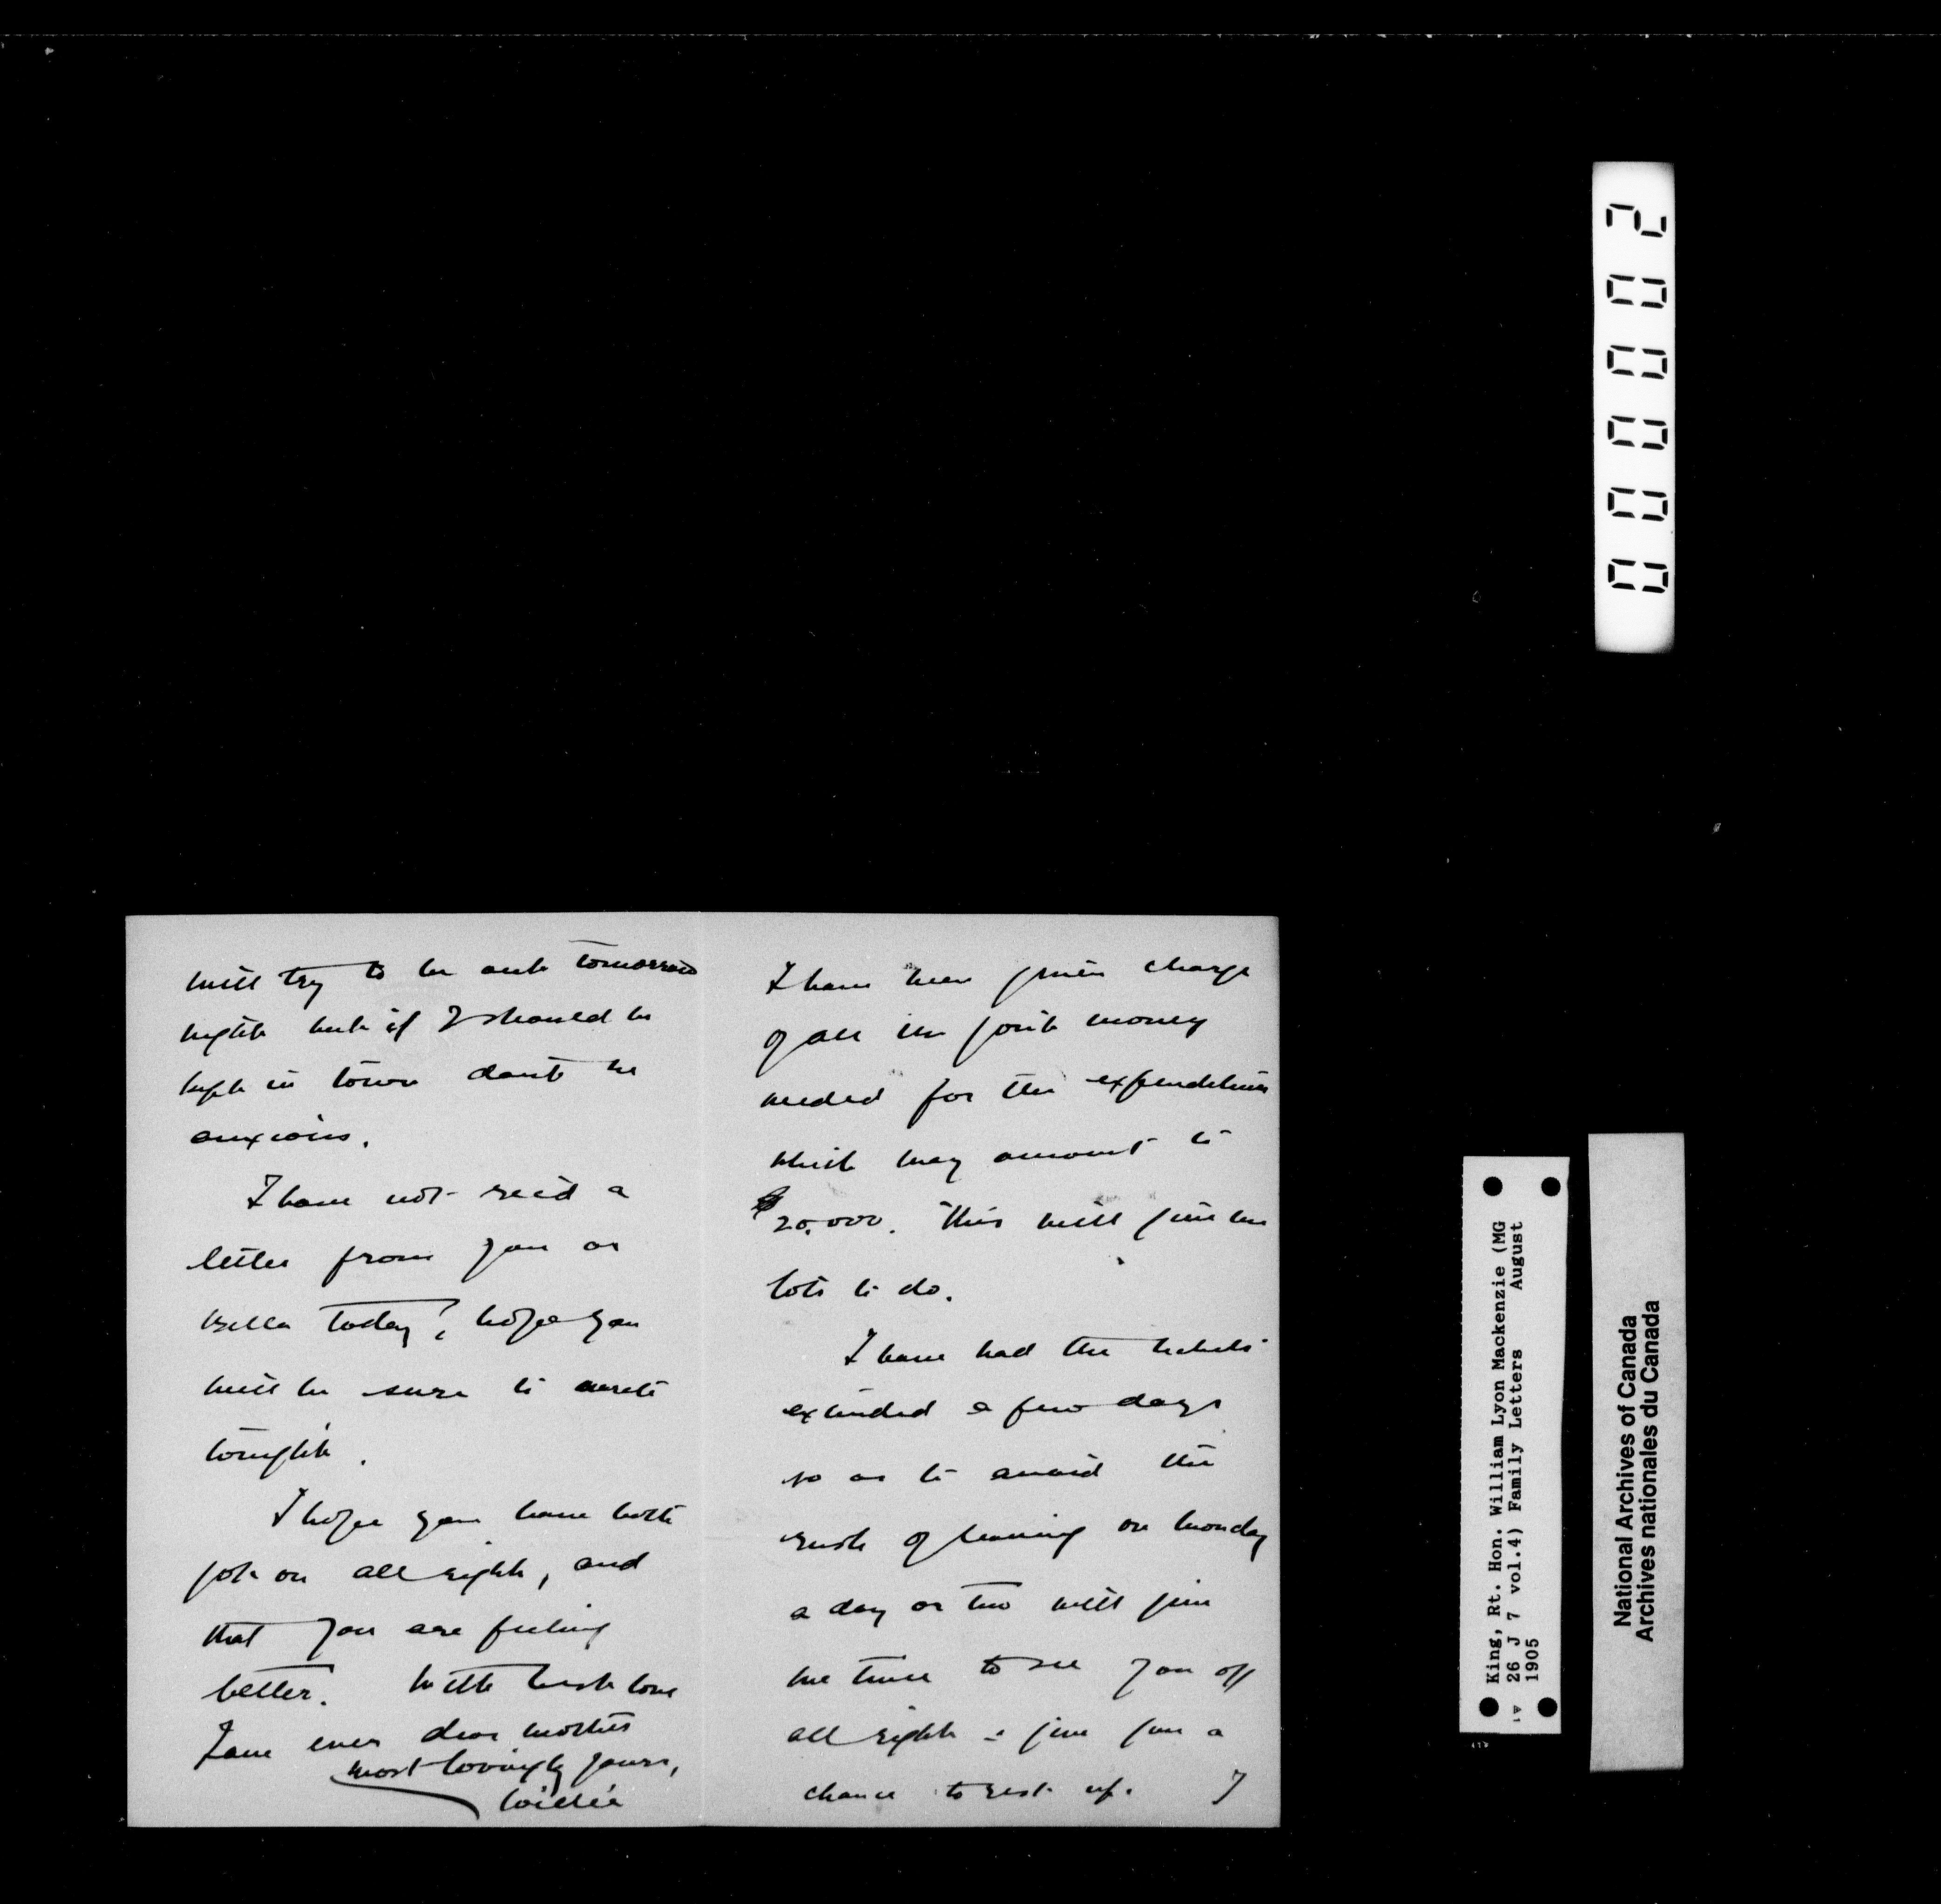 will try to be out tomorrow
night but if I should be
kept in town don't be
anxious.
I have not rec'd a
letter from you or
Bella today, hope you
will be sure to write
tonight.
I hope you have both
got on all right, and
that you are feeling
better. With best love
I am ever dear mother
most lovingly yours,
Willie
I have been given charge
of all the joint money
needed for the expenditure
which may amount to
$20,000. This will give me
lots to do.
I have had the tickets
extended a few days
so as to avoid the
rush of leaving on Monday
a day or two will give
me time to see you off
all right & give you a
chance to rest up. I
000002
King, Rt. Hon. William Lyon Mackenzie (MG
26 J 7 vol.4) Family Letters August
1905
National Archives of Canada
Archives nationales du Canada